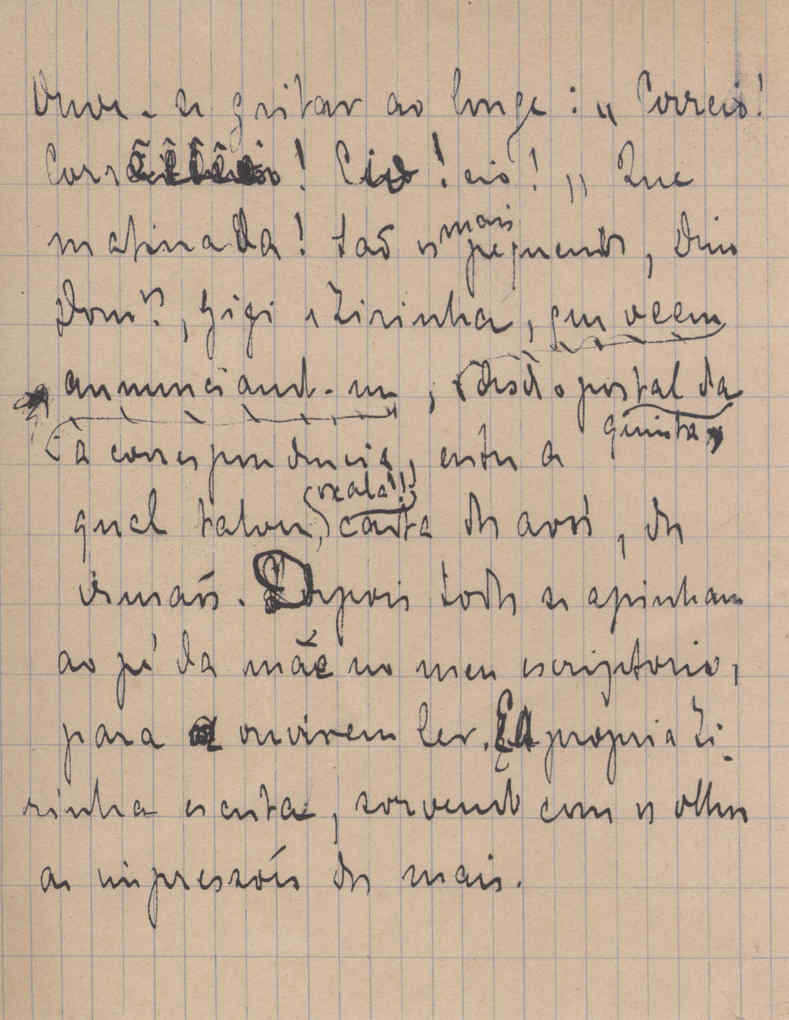 Ouve-se gritar ao longe: „ Correio!
Corrêêêêio! Eio! eio! „ Que
matinada! São os mais pequenos, Dino
Dom.os, Gigi e Zizinha, que veem
annunciando-me, (desde o portal da quinta,
(a correspondencia, entre a
qual talvez, (oxalá!!) carta dos avós, dos
irmãos. Depois todos se apinham
ao pé da mãe no meu escriptorio,
para ouvirem ler. E a propria Zi-
zinha escuta, sorvendo com os olhos
as impressões dos mais.